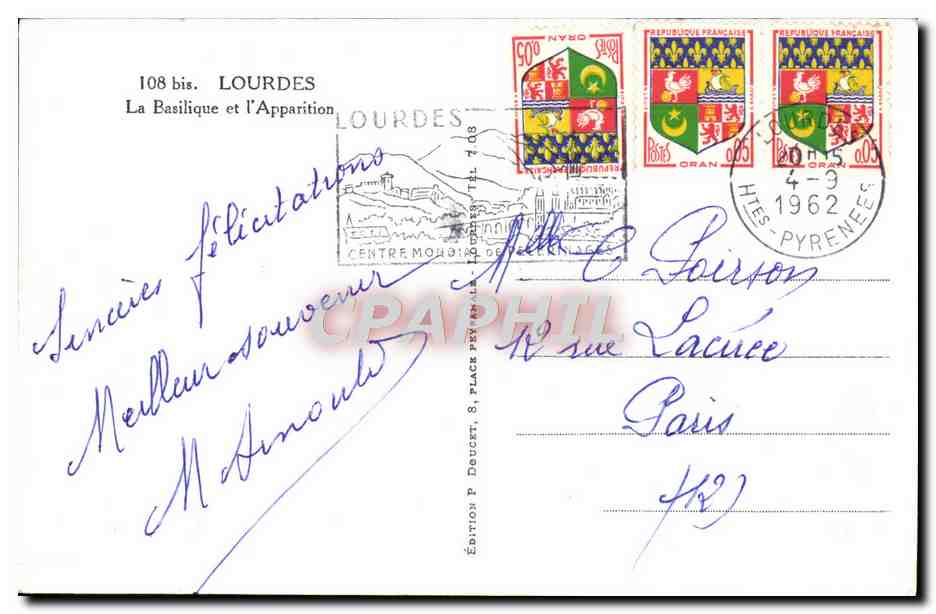 108 bis. LOURDES
La Basilique et l'Apparition
LOURDES
CENTRE MONDIAL DE PELERINAGES
0,05 POSTES
ORAN
REPUBLIQUE FRANÇAISE
REPUBLIQUE FRANÇAISE
POSTES 0,05
ORAN
REPUBLIQUE FRANÇAISE
POSTES 0,05
ORAN
LOURDES
20 H 15
4-9
1962
HTES-PYRENEES
Sincères félicitations
Meilleur souvenir
M Arnould
ÉDITION P. DOUCET, 8, PLACE PEYRAMALE - LOURDES, TEL. 7.08
Melle C Poirson
12 rue Lacuée
Paris
(12)
CPAPHIL